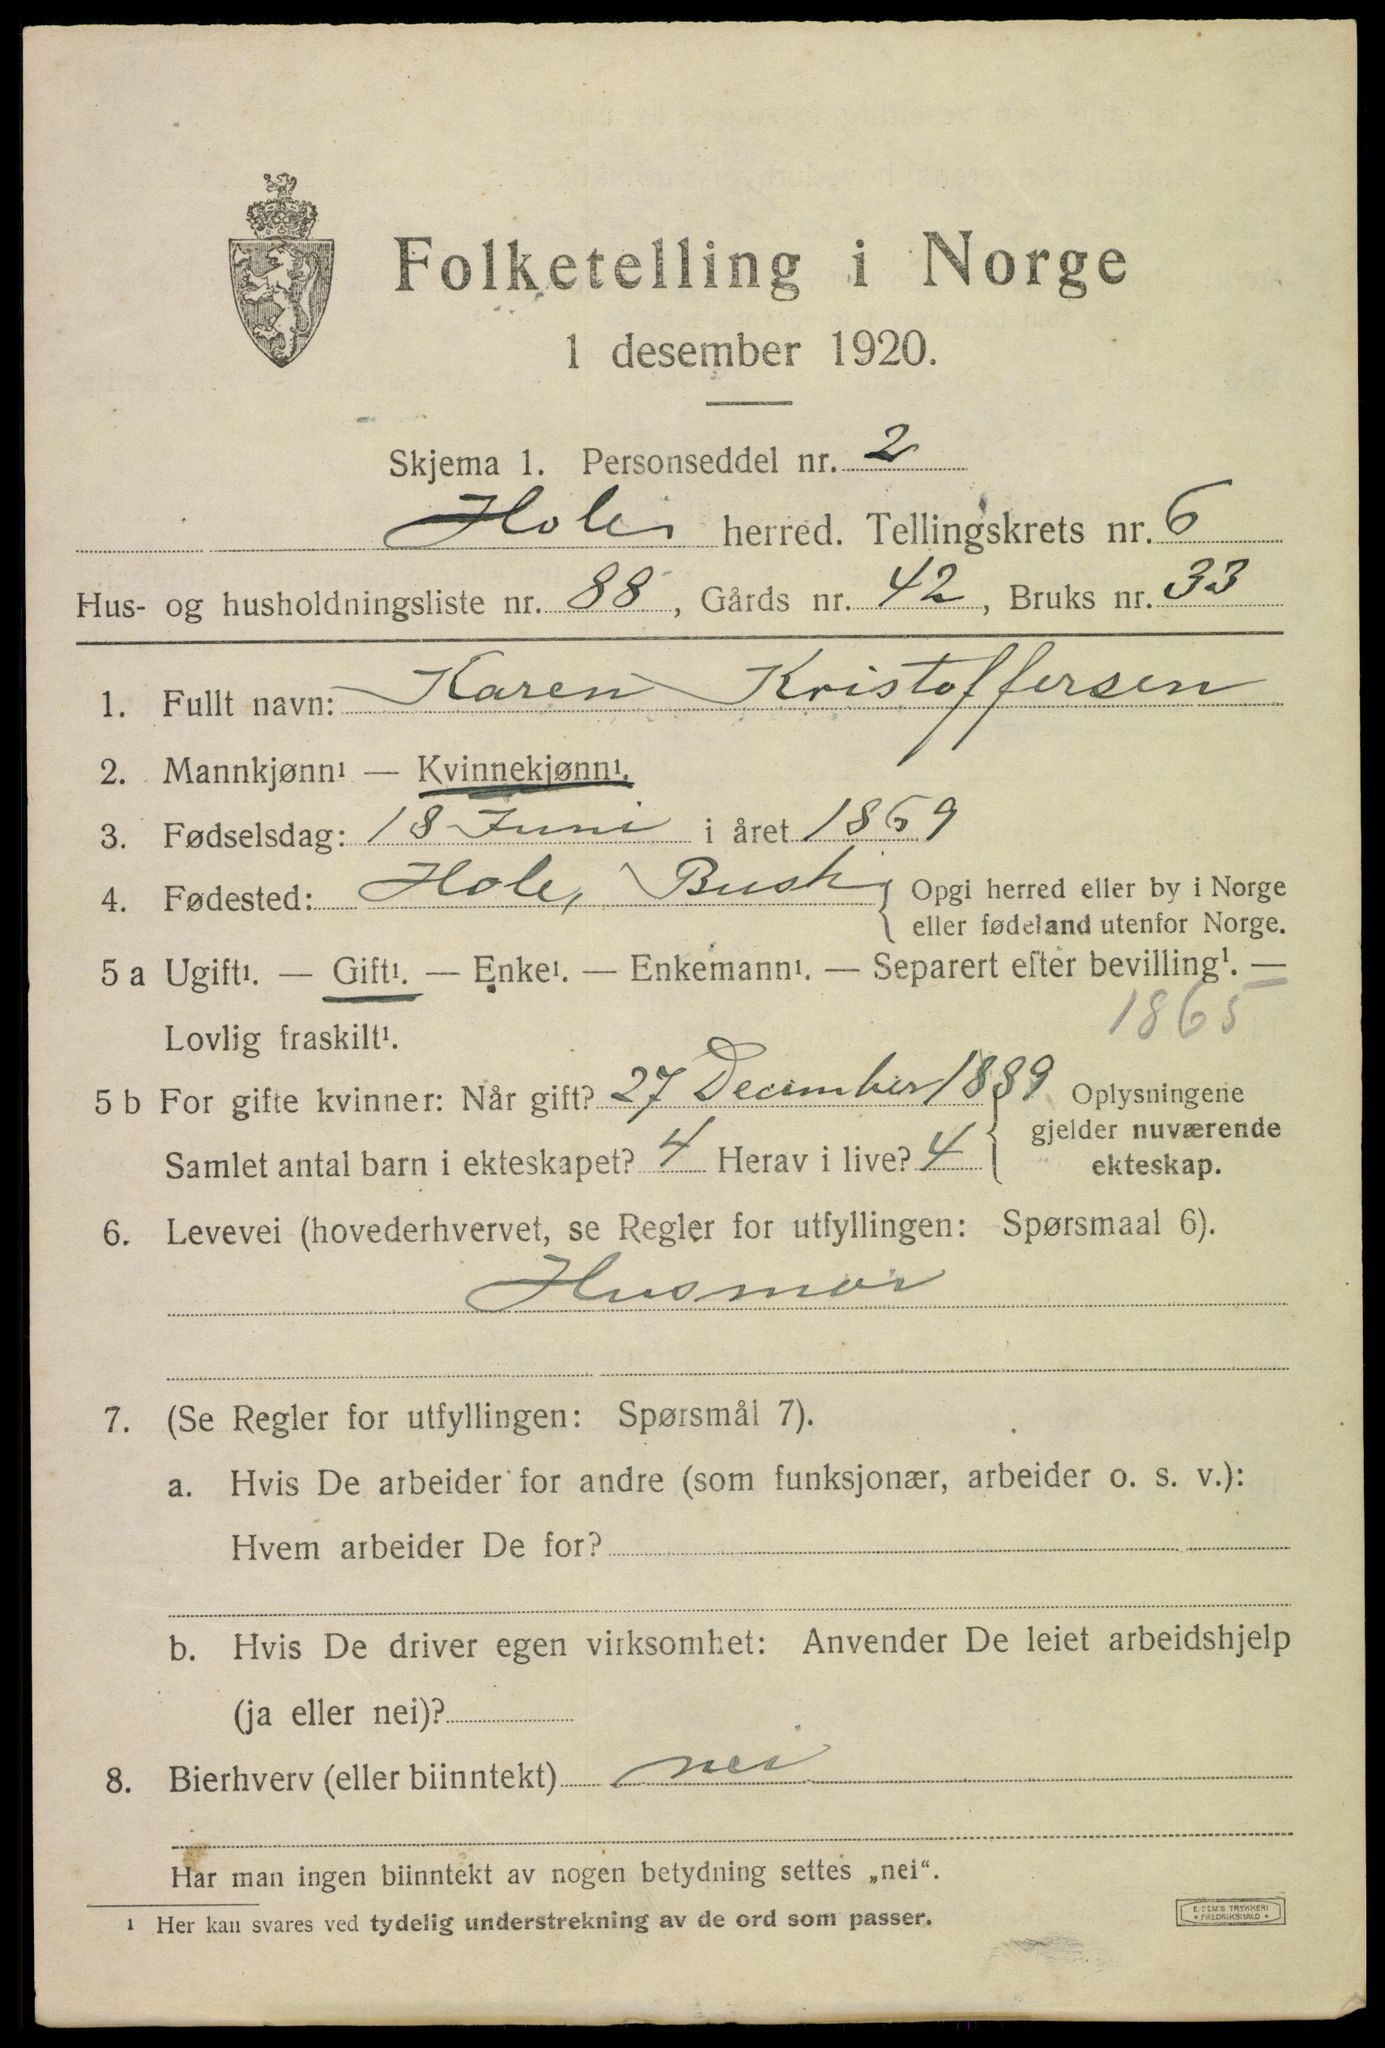 Folketelling i Norge
1 desember 1920.
Skjema 1. Personseddel nr. 2
Hole herred. Tellingskrets nr. 6
Hus- og husholdningsliste nr. 88, Gårds nr. 42, Bruks nr. 33
1. Fullt navn: Karen Kristoffersen
2. Mannkjønn¹ — Kvinnekjønn¹.
3. Fødselsdag: 18 Juni i året 1869
4. Fødested: Hole, Busk. Opgi herred eller by i Norge
eller fødeland utenfor Norge.
5 a Ugift¹. — Gift¹. — Enke¹. — Enkemann¹. — Separert efter bevilling¹. —
Lovlig fraskilt¹. 1865
5 b For gifte kvinner: Når gift? 27 December 1889 Oplysningene
gjelder nuværende
Samlet antal barn i ekteskapet? 4 Herav i live? 4 ekteskap.
6. Levevei (hovederhvervet, se Regler for utfyllingen: Spørsmaal 6).
Husmor
7. (Se Regler for utfyllingen: Spørsmål 7).
a. Hvis De arbeider for andre (som funksjonær, arbeider o. s. v.):
Hvem arbeider De for?
b. Hvis De driver egen virksomhet: Anvender De leiet arbeidshjelp
(ja eller nei)?
8. Bierhverv (eller biinntekt) nei
Har man ingen biinntekt av nogen betydning settes „nei“.
¹ Her kan svares ved tydelig understrekning av de ord som passer.
E. SEM'S TRYKKERI
FREDRIKSHALD